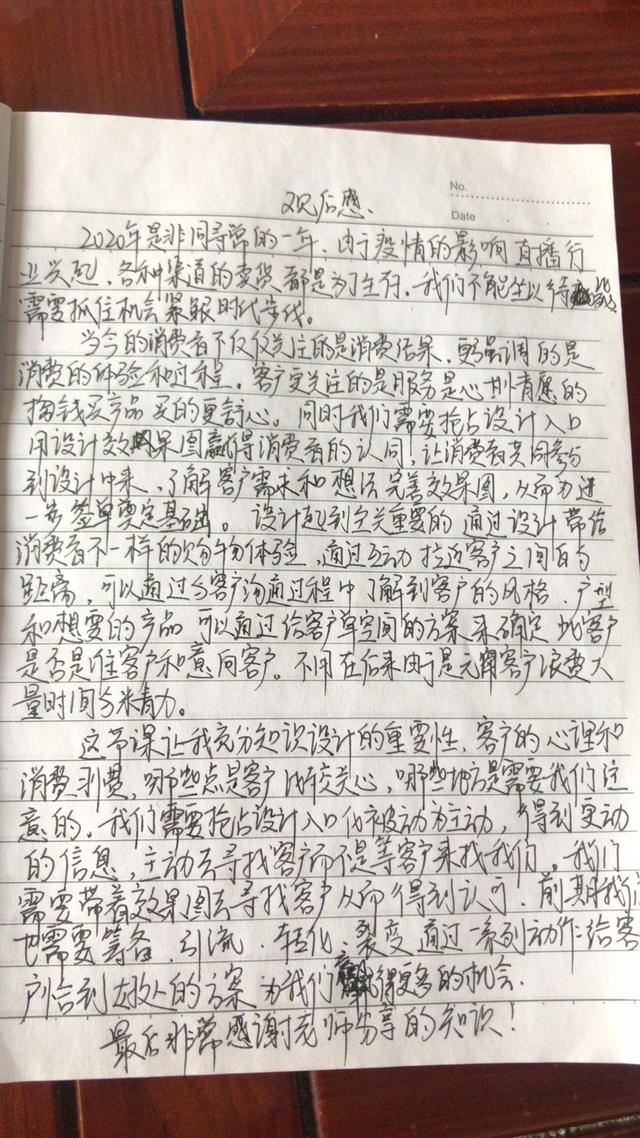 No.
Date
观后感.
2020年是非同寻常的一年,由于疫情的影响直播行
业兴起,各种渠道的卖货都是为了生存,我们不能坐以待
需要抓住机会紧跟时代步伐。
当今的消费者不仅仅关注的是消费结果,更强调的是
消费的体验和过程,客户更关注的是服务是心甘情愿的
掏钱买产品买的更舒心。同时我们需要抢占设计入口
用设计效果图赢得消费者的认同!让消费者共同参与
到设计中来,了解客户需求和想法完善效果图,从而为进
一步签单奠定基础。设计起到至关重要的通过设计带给
消费者不一样的购物体验,通过互动拉近客户之间的
距离,可以通过与客户沟通过程中了解到客户的风格,户型
和想要的产品可以通过给客户单空间的方案来确定此客户
是否是准客户和意向客户。不用在后来由于是无用客户浪费大
量时间与精力。
这节课让我充分知识设计的重要性,客户的心理和
消费,哪些点是客户比较关心,哪些地方是需要我们注
意的,我们需要抢占设计入口化被动为主动,得到变动
的信息,主动去寻找客户而不是等客户来找我们,我们
需要带着效果图去寻找客户从而得到认可.前期我们
也需要筹备.引流.转化.裂变通过一系列动作给客
户恰到好处的方案为我们赢得更多的机会.
最后非常感谢老师分享的知识!